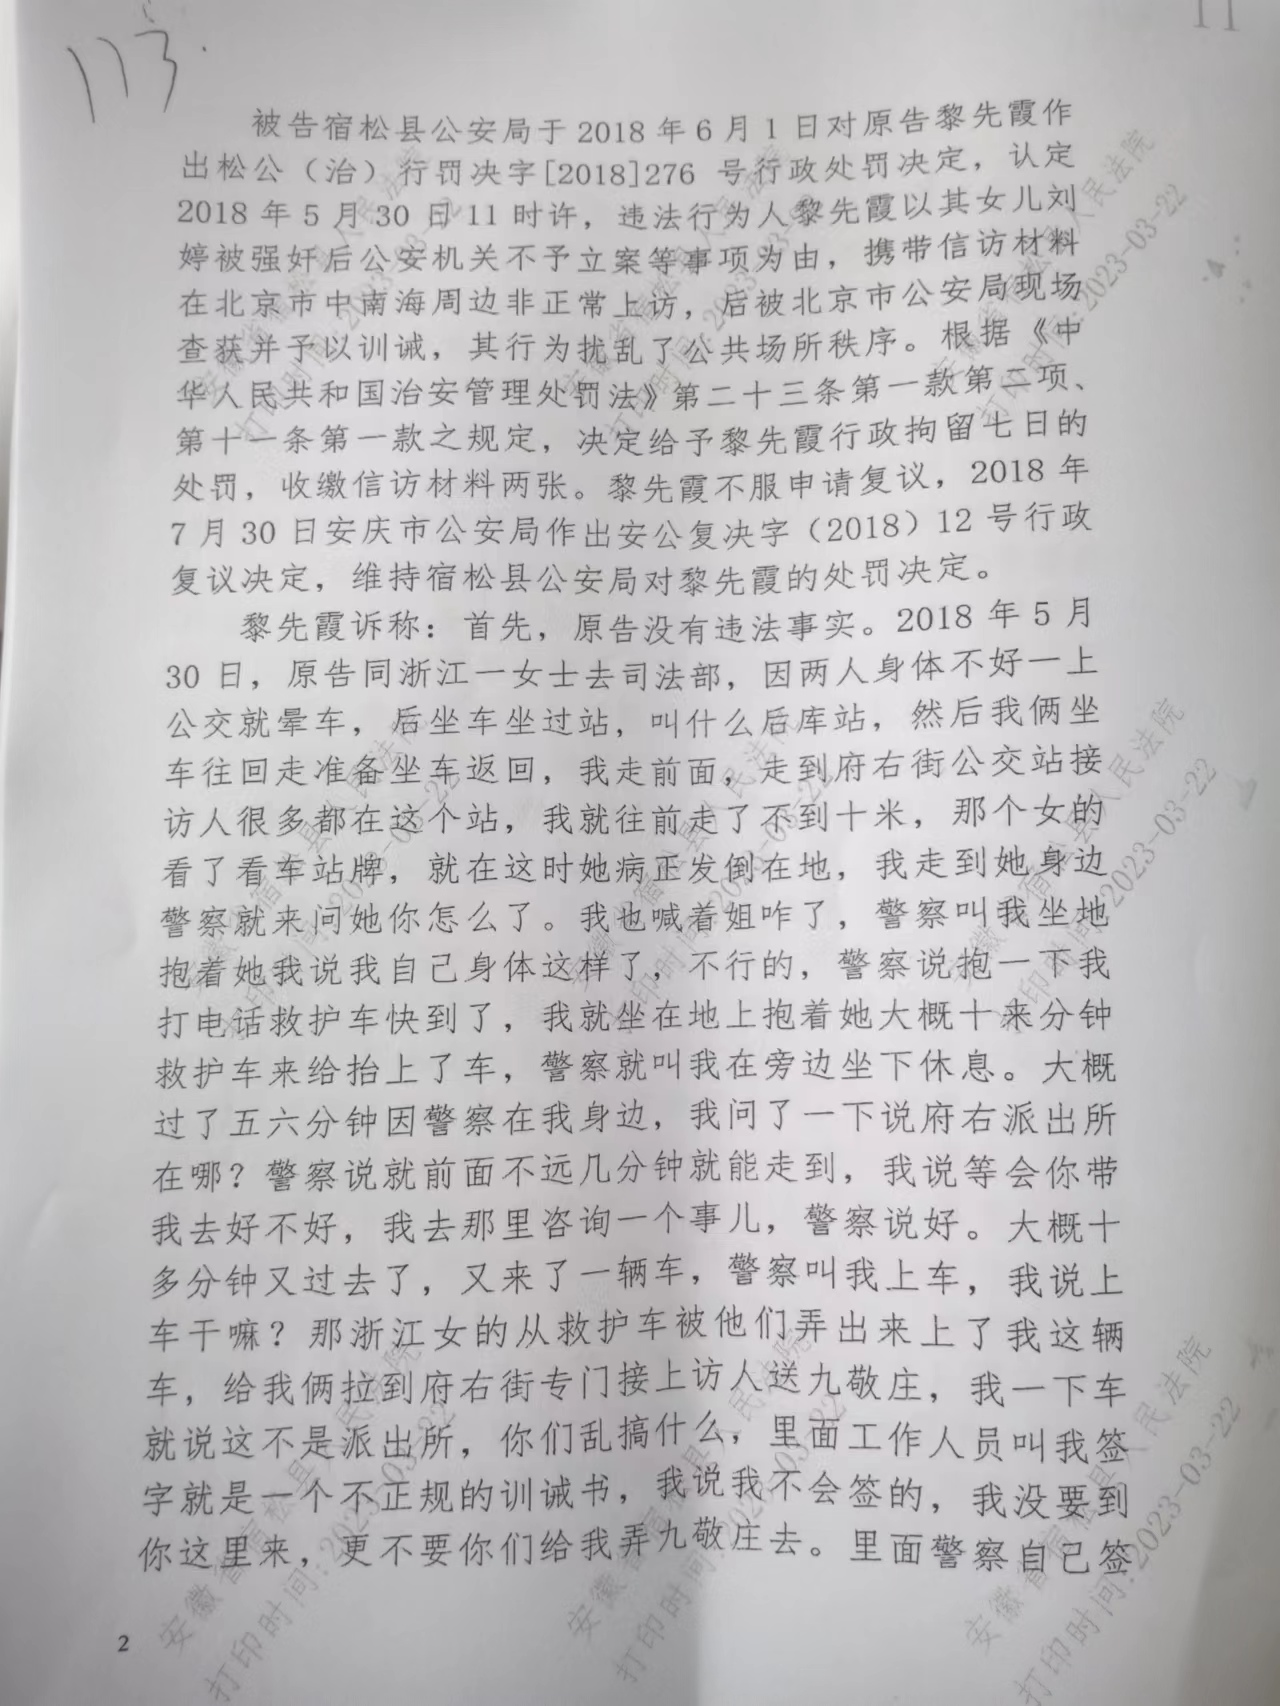 113.
11
被告宿松县公安局于 2018 年 6 月 1 日对原告黎先霞作
出松公（治）行罚决字[2018]276 号行政处罚决定，认定
2018 年 5 月 30 日 11 时许，违法行为人黎先霞以其女儿刘
婷被强奸后公安机关不予立案等事项为由，携带信访材料
在北京市中南海周边非正常上访，后被北京市公安局现场
查获并予以训诫，其行为扰乱了公共场所秩序。根据《中
华人民共和国治安管理处罚法》第二十三条第一款第二项、
第十一条第一款之规定，决定给予黎先霞行政拘留七日的
处罚，收缴信访材料两张。黎先霞不服申请复议，2018 年
7 月 30 日安庆市公安局作出安公复决字（2018）12 号行政
复议决定，维持宿松县公安局对黎先霞的处罚决定。
黎先霞诉称：首先，原告没有违法事实。2018 年 5 月
30 日，原告同浙江一女士去司法部，因两人身体不好一上
公交就晕车，后坐车坐过站，叫什么后库站，然后我俩坐
车往回走准备坐车返回，我走前面，走到府右街公交站接
访人很多都在这个站，我就往前走了不到十米，那个女的
看了看车站牌，就在这时她病正发倒在地，我走到她身边
警察就来问她你怎么了。我也喊着姐咋了，警察叫我坐地
抱着她我说我自己身体这样了，不行的，警察说抱一下我
打电话救护车快到了，我就坐在地上抱着她大概十来分钟
救护车来给抬上了车，警察就叫我在旁边坐下休息。大概
过了五六分钟因警察在我身边，我问了一下说府右派出所
在哪？警察说就前面不远几分钟就能走到，我说等会你带
我去好不好，我去那里咨询一个事儿，警察说好。大概十
多分钟又过去了，又来了一辆车，警察叫我上车，我说上
车干嘛？那浙江女的从救护车被他们弄出来上了我这辆
车，给我俩拉到府右街专门接上访人送九敬庄，我一下车
就说这不是派出所，你们乱搞什么，里面工作人员叫我签
字就是一个不正规的训诫书，我说我不会签的，我没要到
你这里来，更不要你们给我弄九敬庄去。里面警察自己签
2
安徽省宿松县人民法院
打印时间:2023-03-22